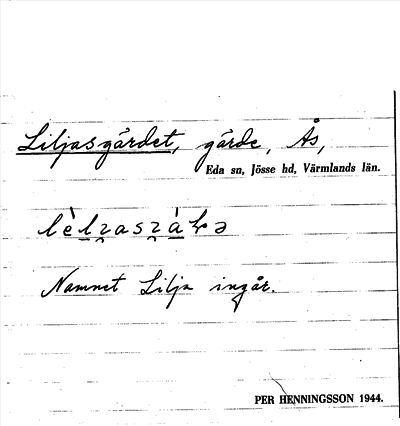 Liljasgärdet, gärde, Ås,
Eda sn, Jösse hd, Värmlands län.
Namnet Lilja ingår.
PER HENNINGSSON 1944.